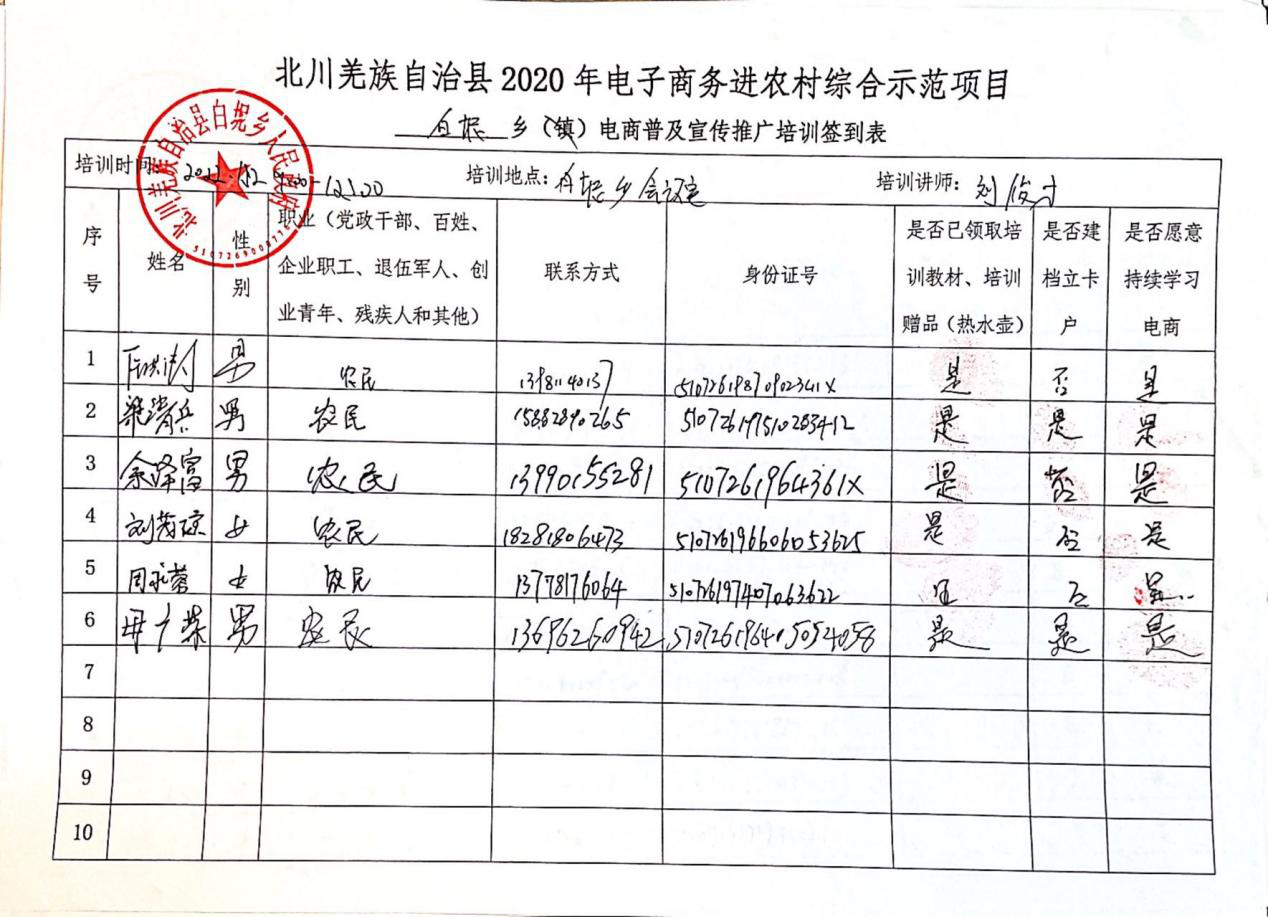 北川羌族自治县 2020 年电子商务进农村综合示范项目
白坭 乡（镇）电商普及宣传推广培训签到表
北川羌族自治县白坭乡人民政府
培训时间: 培训地点: 白坭乡会议室 培训讲师: 刘俊才
序号 姓名 性别 职业（党政干部、百姓、企业职工、退伍军人、创业青年、残疾人和其他） 联系方式 身份证号 是否已领取培训教材、培训赠品（热水壶） 是否建档立卡户 是否愿意持续学习电商
1 男 农民 13981140137 51072619870902341X 是 否 是
2 男 农民 15882890265 510726197510283412 是 是 是
3 余泽富 男 农民 13990155281 5107261964361X 是 否 是
4 刘茂琼 女 农民 18281806473 510726196606053625 是 否 是
5 女 农民 13778176064 510726197407063622 是 否 是
6 男 农民 13696260942 510726196405054058 是 是 是
7
8
9
10